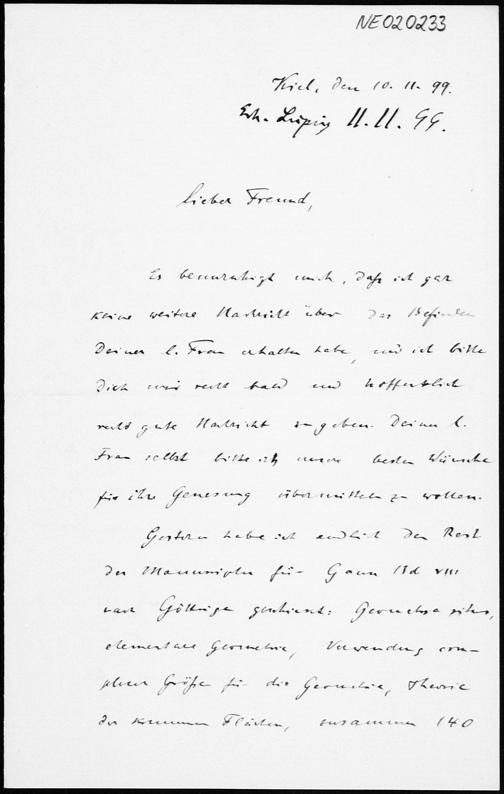 NE020233
Kiel, den 10. 11. 99.
Erh. Leipzig 11. 11. 99.
Lieber Freund,
Es beunruhigt mich, daß ich gar
keine weitere Nachricht über das Befinden
Deiner l. Frau erhalten habe, und ich bitte
Dich mir recht bald und hoffentlich
recht gute Nachricht zu geben. Deiner l.
Frau selbst bitte ich unsere besten Wünsche
für ihre Genesung übermitteln zu wollen.
Gestern habe ich endlich den Rest
des Manuscriptes für Gauss Bd VIII
nach Göttingen geschickt: Geometria situs,
elementare Geometrie, Verwendung com-
plexer Größen für die Geometrie, Theorie
der krummen Flächen, zusammen 140